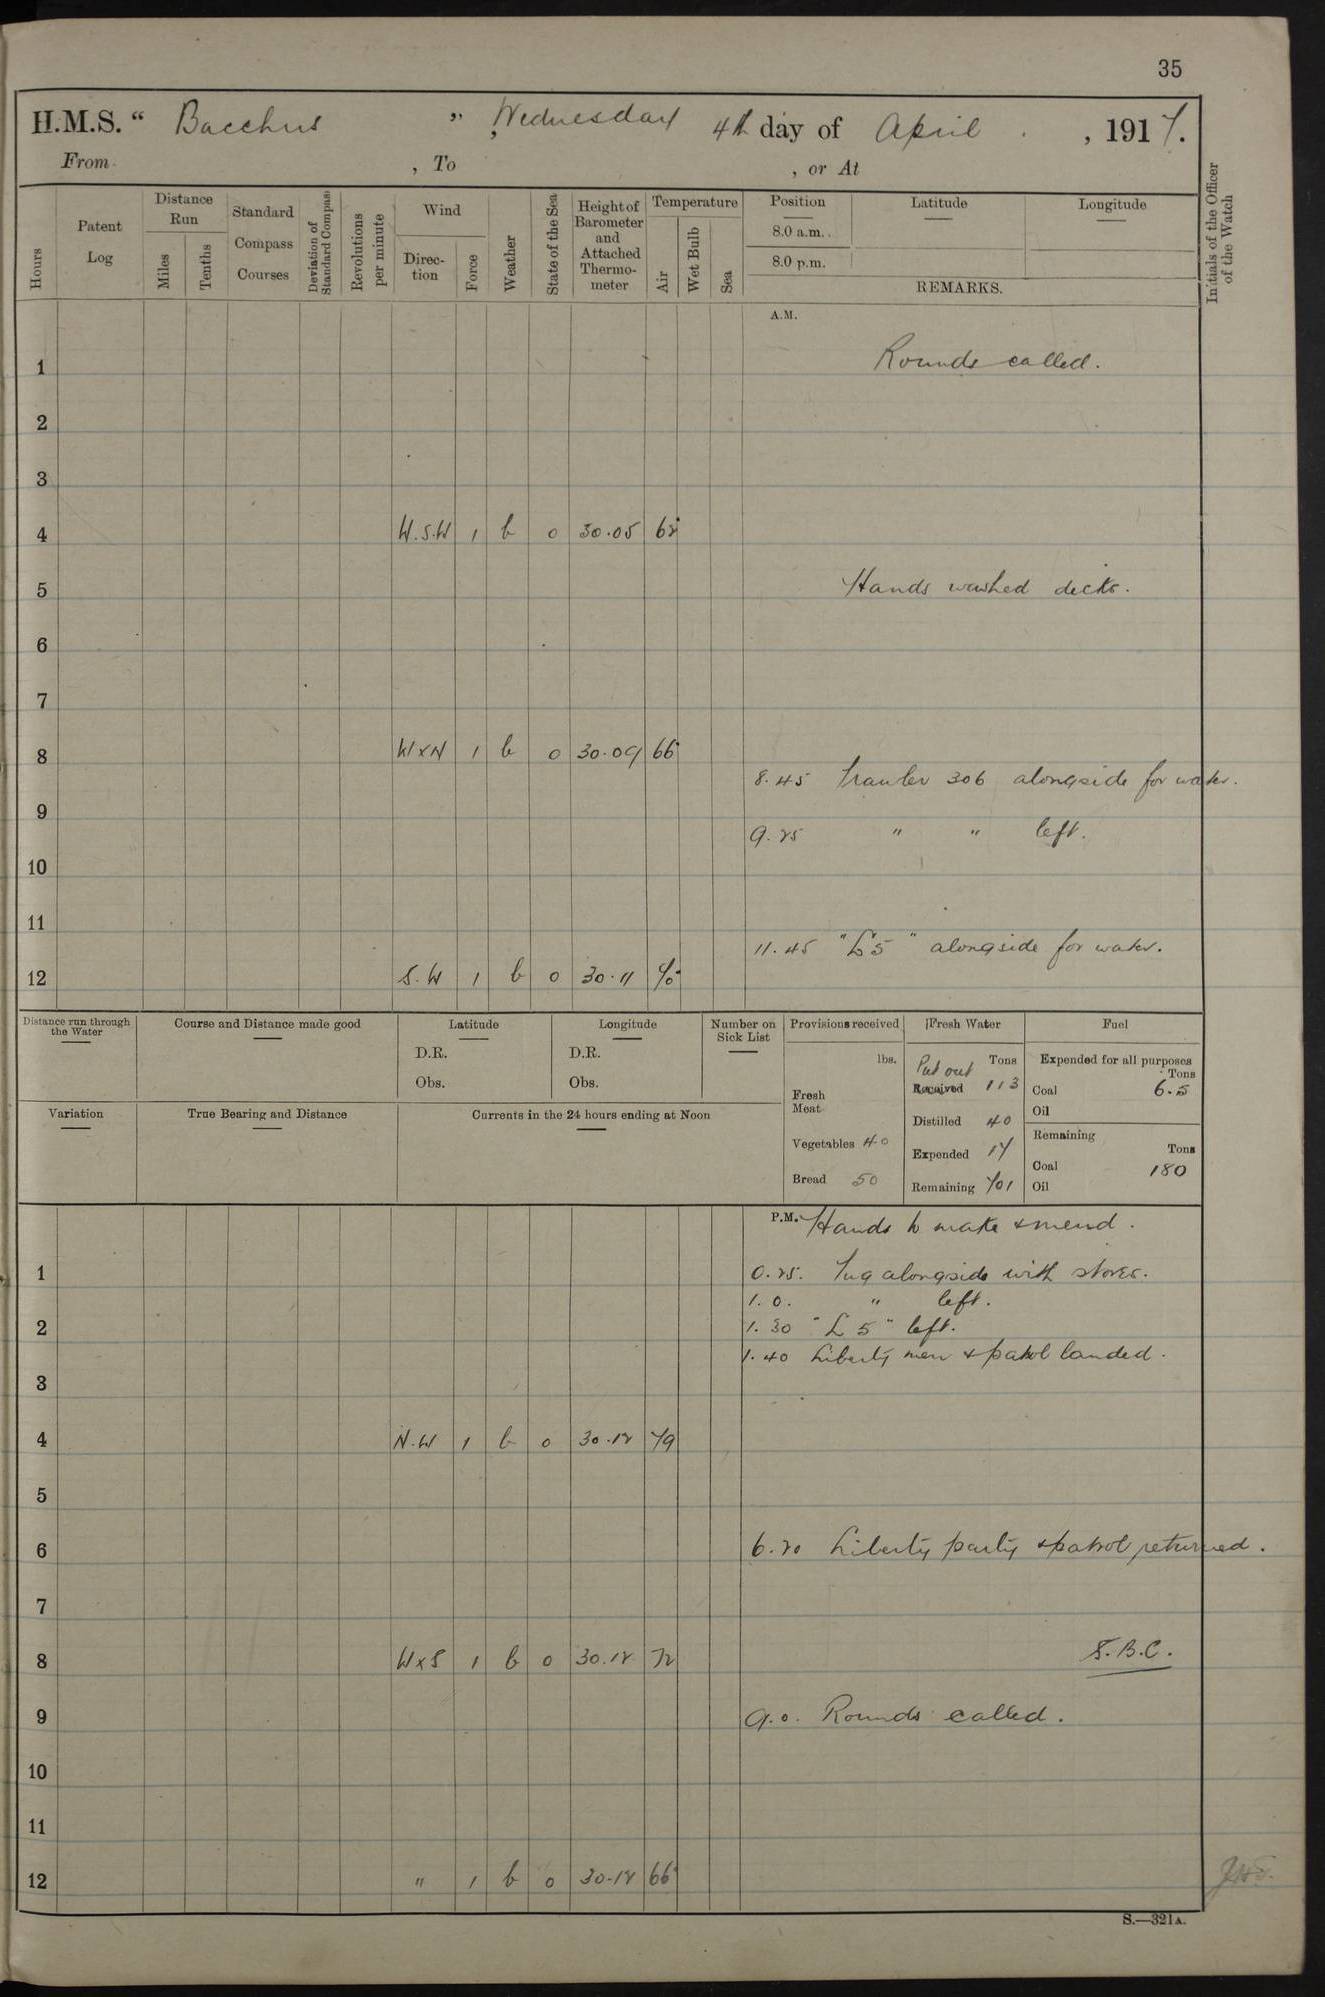 35
H.M.S. “ Bacchus ” , Wednesday 4th day of April , 1917.
From , To , or At
Hours
Patent Log
Distance Run
Miles
Tenths
Standard Compass Courses
Deviation of Standard Compass
Revolutions per minute
Wind
Direction
Force
Weather
State of the Sea
Height of Barometer and Attached Thermometer
Temperature
Air
Wet Bulb
Sea
Position
8.0 a.m.
8.0 p.m.
Latitude
Longitude
REMARKS.
Initials of the Officer of the Watch
A.M.
1 Rounds called.
2
3
4 W.S.W 1 b 0 30.05 62
5 Hands washed decks.
6
7
8 W x N 1 b 0 30.09 66
8.45 Trawler 306 alongside for water.
9
9.25 " " left.
10
11
11.45 "L 5" alongside for water.
12 S.W 1 b 0 30.11 70
Distance run through the Water
Course and Distance made good
Latitude
D.R.
Obs.
Longitude
D.R.
Obs.
Number on Sick List
Provisions received
lbs.
Fresh Meat
Vegetables 40
Bread 50
Fresh Water
Tons
Put out
Received 113
Distilled 40
Expended 17
Remaining 701
Fuel
Expended for all purposes
Tons
Coal 6.5
Oil
Remaining
Tons
Coal 180
Oil
Variation
True Bearing and Distance
Currents in the 24 hours ending at Noon
P.M. Hands to make & mend.
1 0.25. Tug alongside with stores.
1.0. " left.
2 1.30 "L 5" left.
1.40 Liberty men & patrol landed.
3
4 N.W 1 b 0 30.12 79
5
6 6.20 Liberty party & patrol returned.
7
8 W x S 1 b 0 30.12 72 S.B.C.
9 9.0. Rounds called.
10
11
12 " 1 b 0 30.12 66
S.—321A.